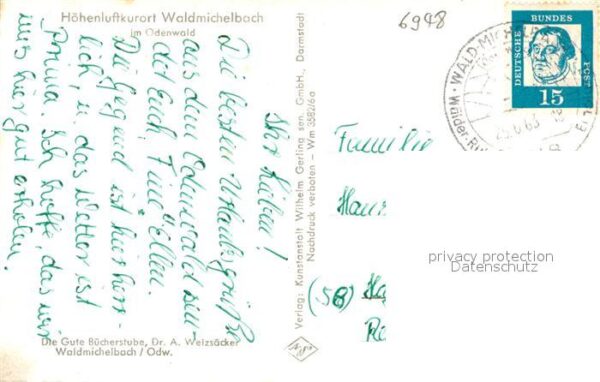 Höhenluftkurort Waldmichelbach
im Odenwald
6948
Ihr Lieben!
Die besten Urlaubsgrüße
aus dem Odenwald sen-
det Euch, Tine Ellen.
Die Gegend ist hier herr-
lich, u. das Wetter ist
prima. Ich hoffe, das wir
uns hier gut erholen.
Die Gute Bücherstube, Dr. A. Weizsäcker
Waldmichelbach / Odw.
Verlag: Kunstanstalt Wilhelm Gerling sen. GmbH., Darmstadt
Nachdruck verboten - Wm 3582/6a
Agfa
DEUTSCHE BUNDES POST
15
WALD-MICH
26.6.63
Familie
(58)
privacy protection
Datenschutz